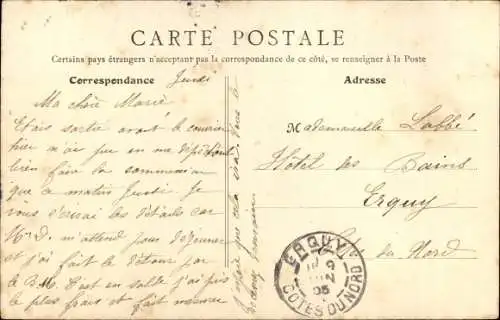 CARTE POSTALE
Certains pays étrangers n'acceptant pas la correspondance de ce côté, se renseigner à la Poste
Correspondance
Jeudi
Ma chère Marie
Etais sortie avant le courrier
hier n'ai pu en me dépêchant
bien faire la commission
que ce matin Jeudi. Je
vous écrirai les détails car
Mr D. m'attend pour déjeuner
et j'ai fait le détour par
le B.M. C'est en solde j'ai pris
le plus frais et fait mesurer
que cela ira. Tous
Adresse
Mademoiselle Labbé
Hôtel des Bains
Erquy
Côtes du Nord
ERQUY
05
COTES DU NORD